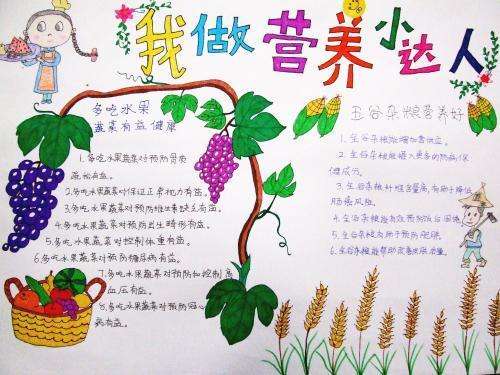 我做营养小达人
多吃水果
蔬菜有益健康
1.多吃水果蔬菜对预防骨质
疏松有益。
2.多吃水果蔬菜对保证正常视力有益。
3.多吃水果蔬菜对预防维生素缺乏有益。
4.多吃水果蔬菜对预防出生畸形有益。
5.多吃水果蔬菜对控制体重有益。
6.多吃水果蔬菜对预防糖尿病有益。
7.多吃水果蔬菜对预防和控制高
血压有益。
8.多吃水果蔬菜对预防冠心
病有益。
五谷杂粮营养好
1.五谷杂粮能增加营养。
2.五谷杂粮能摄入更多的
保健成分。
3.五谷杂粮纤维含量高,有助于降低
肠癌风险。
4.五谷杂粮能有效预防
5.五谷杂粮有助于预防肥胖。
6.五谷杂粮能帮助改善皮肤